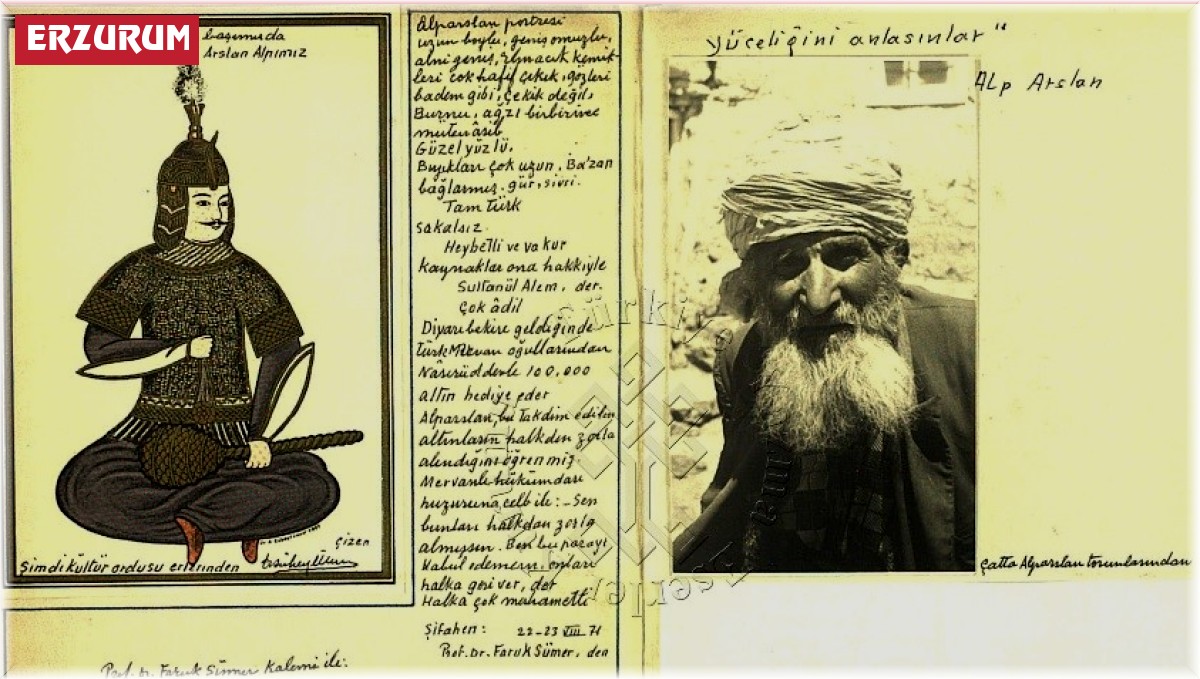 ERZURUM
başımızda
Arslan Alpımız
Şimdi kültür ordusu erlerinden
Çizen
Prof. Dr. Faruk Sümer Kalemi ile:
Alparslan portresi
uzun boylu, geniş omuzlu,
alnı geniş, elmacık kemik-
leri çok hafif çekik, gözleri
badem gibi, çekik değil,
Burnu, ağzı birbirine
mütenâsib
Güzel yüzlü.
Bıyıkları çok uzun, Ba'zan
bağlarmış. gür, sivri.
Tam türk
sakalsız.
Heybetli ve vakur
Kaynaklar ona hakkiyle
Sultanül Alem, der.
Çok âdil
Diyarıbekire geldiğinde
türk Mervan oğullarından
Nâsırüddevle 100.000
altın hediye eder
Alparslan, bu takdim edilen
altınların halkdan zorla
alındığını öğrenmiş
Mervanlı hükümdarı
huzuruna celb ile: - Sen
bunları halkdan zorla
almışsın. Ben bu parayı
Kabul edemem, onları
halka geri ver, der
Halka çok merhametli
Şifahen: 22-23 VIII 71
Prof. Dr. Faruk Sümer, den
Yüceliğini anlasınlar"
Alp Arslan
Çatta Alparslan torunlarından
türkiye
eserleri